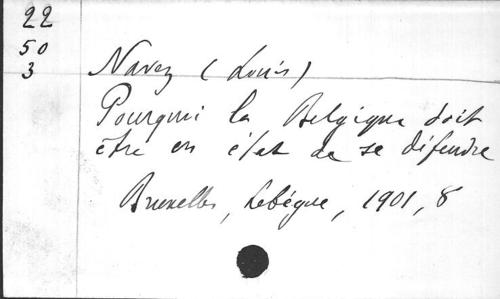 22
50
3
Navez (Louis)
Pourquoi la Belgique doit
être en état de se défendre
Bruxelles, Lebègue, 1901, 8